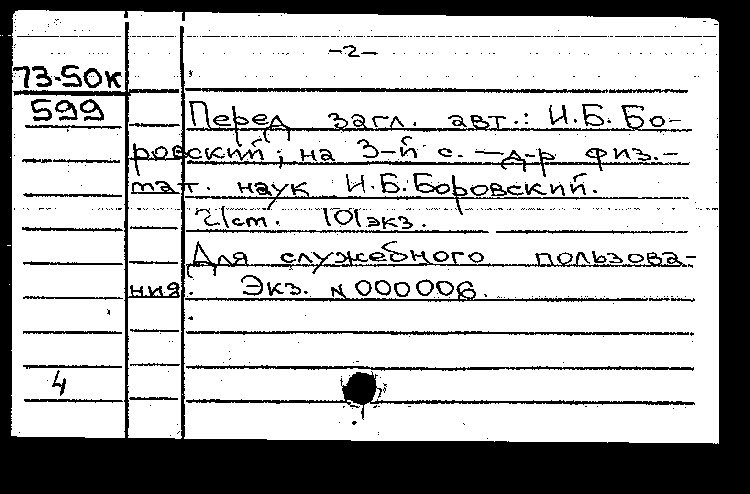 -2-
73-50к
599
Перед загл. авт.: И.Б. Бо-
ровский; на 3-й с. — д-р физ.-
мат. наук И.Б. Боровский.
101экз.
Для служебного пользова-
ния. Экз. №000006.
4